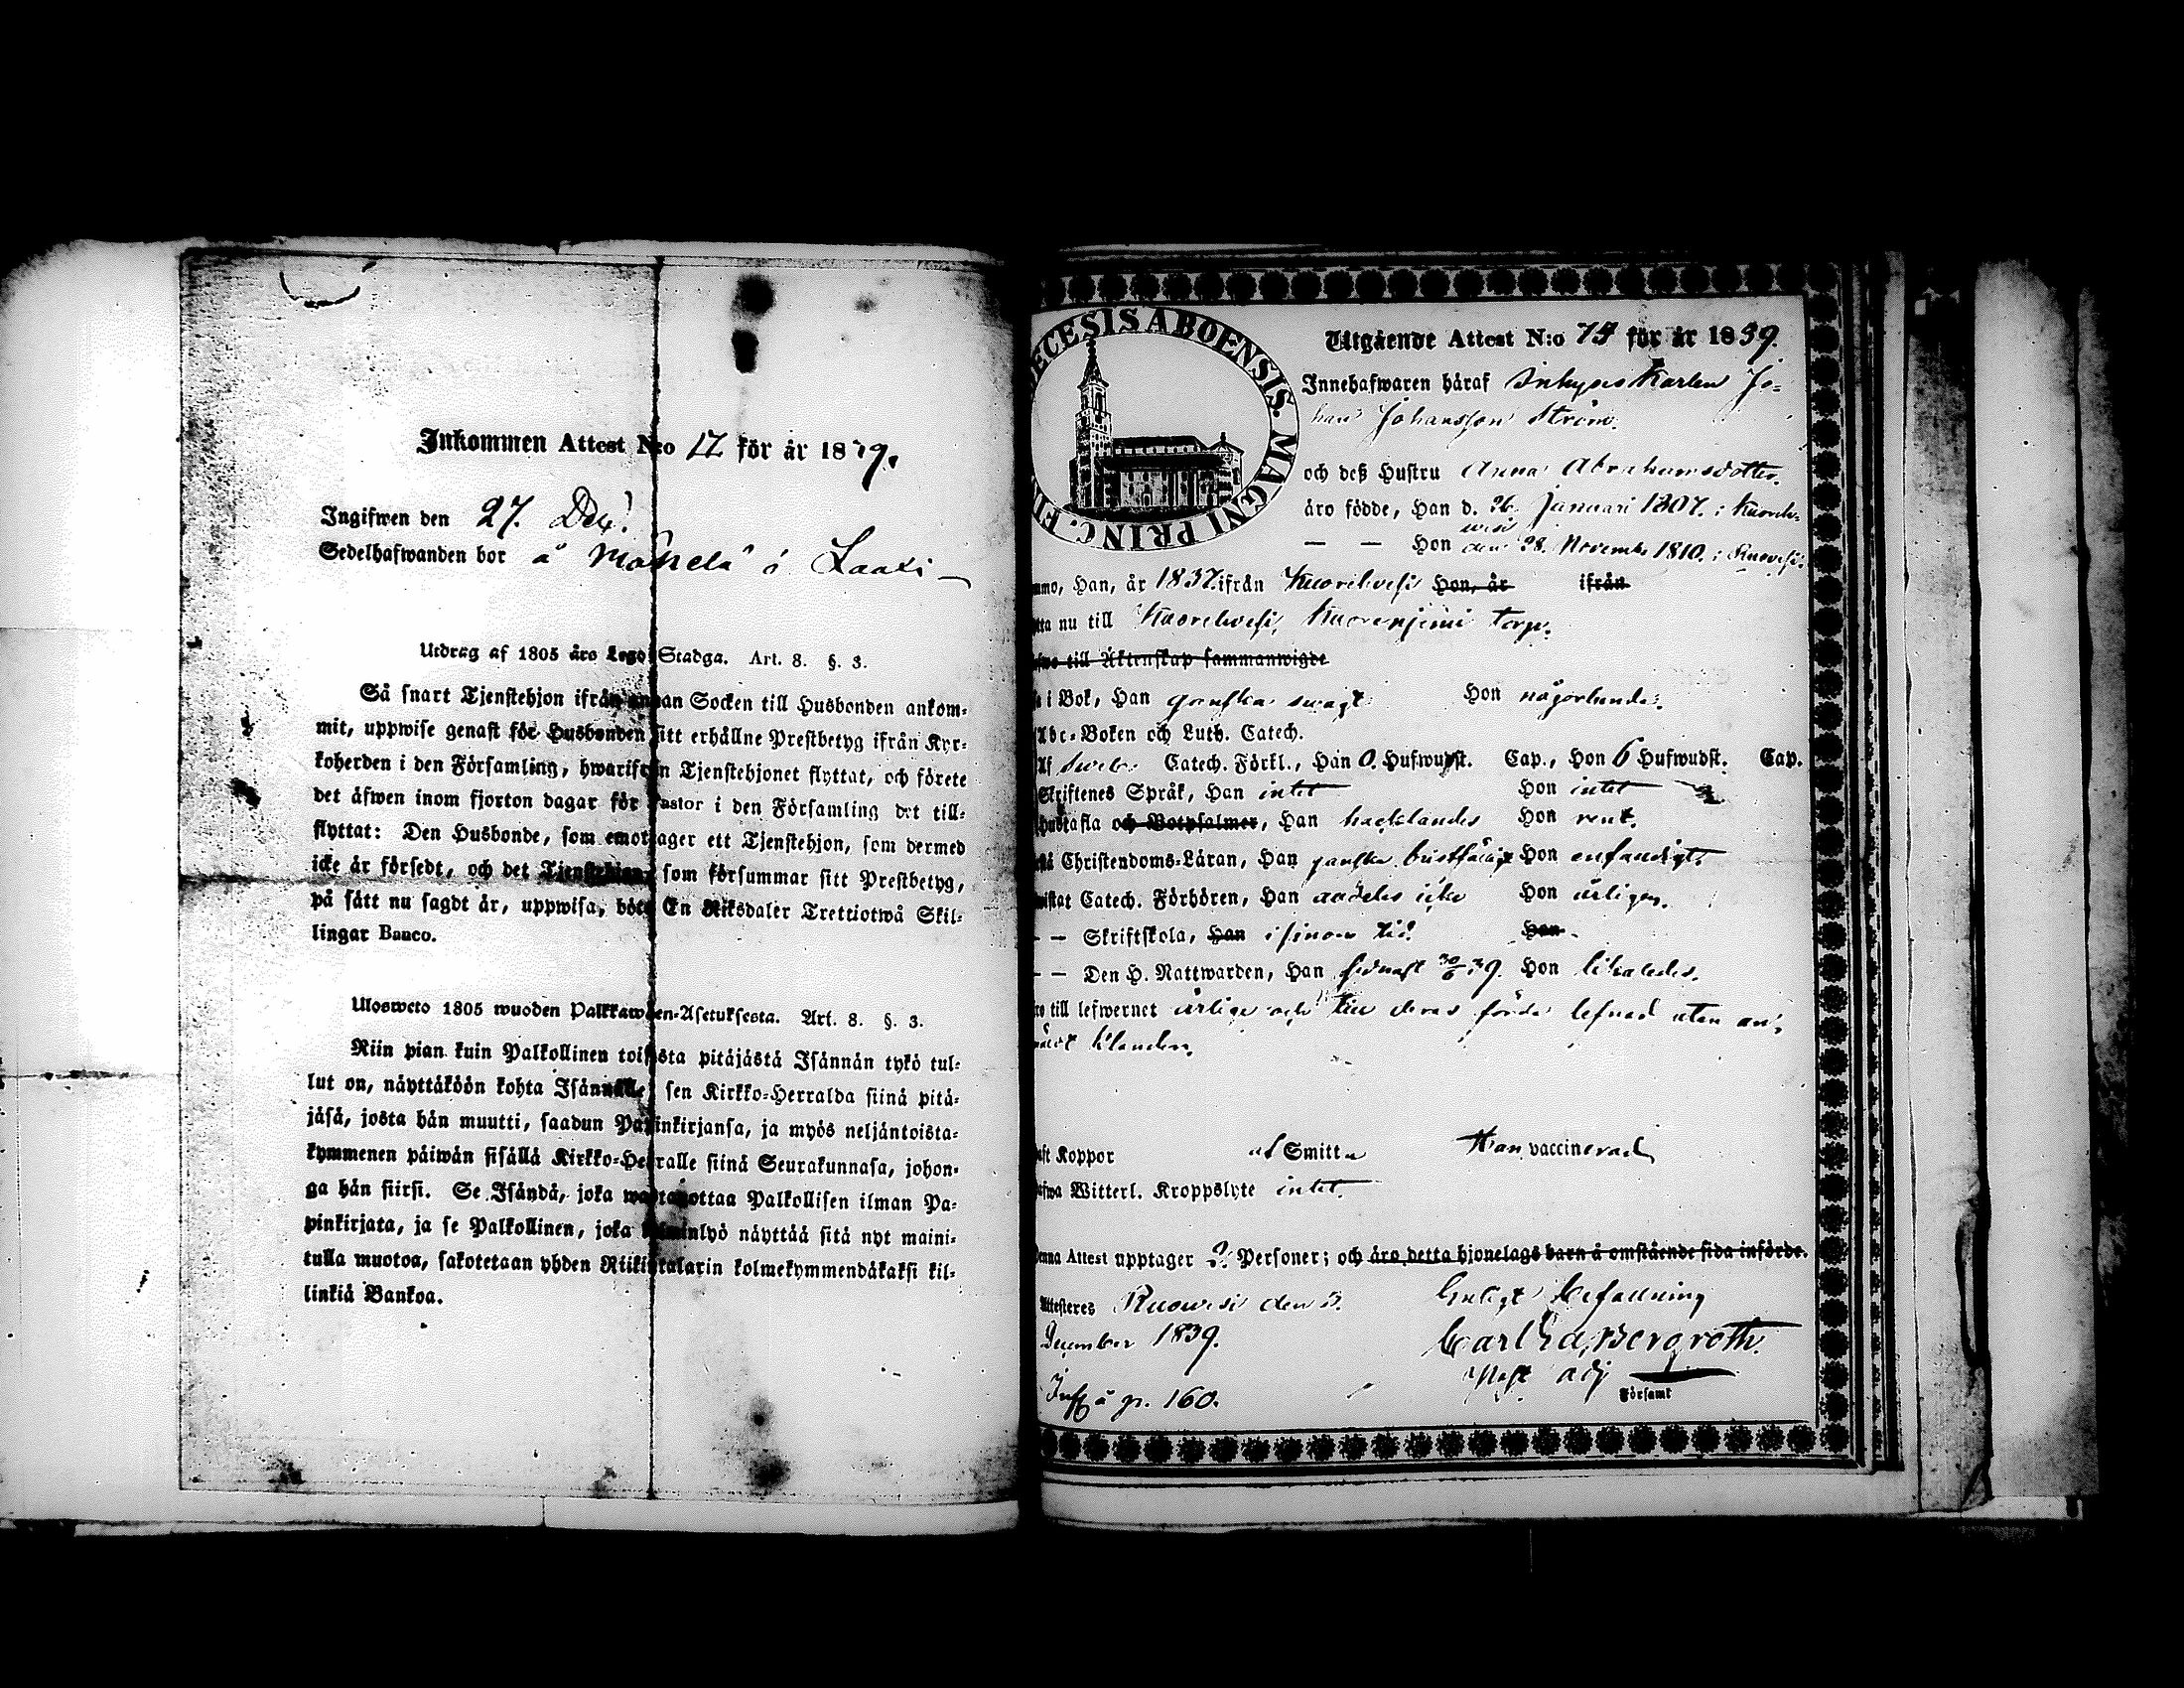 Inkommen Attest N:o 17 för år 1839.
Ingifwen den 27. Dec:
Sedelhafwanden bor å
Utdrag af 1805 års Lego Stadga. Art. 8. §. 3.
Så snart Tjenstehjon ifrån annan Socken till Husbonden ankom-
mit, uppwise genast för Husbonden sitt erhållne Prestbetyg ifrån Kyr-
koherden i den Församling, hwarifrån Tjenstehjonet flyttat, och förete
det äfwen inom fjorton dagar för Pastor i den Församling det till-
flyttat: Den Husbonde, som emottager ett Tjenstehjon, som dermed
icke är försedt, och det Tjenstehjon, som försummar sitt Prestbetyg,
på sätt nu sagdt är, uppwisa, böte En Riksdaler Trettiotwå Skil-
lingar Banco.
Ulosweto 1805 wuoden Palkkawäen-Asetuksesta. Art. 8. §. 3.
Niin pian kuin Palkollinen toisesta pitäjästä Isännän tykö tul-
lut on, näyttäköön kohta Isännälle sen Kirkko-Herralda siinä pitä-
jäsä, josta hän muutti, saadun Papinkirjansa, ja myös neljäntoista-
kymmenen päiwän sisällä Kirkko-Herralle siinä Seurakunnasa, johon-
ga hän siirsi. Se Isändä, joka wastaanottaa Palkollisen ilman Pa-
pinkirjata, ja se Palkollinen, joka laiminlyö näyttää sitä nyt maini-
tulla muotoa, sakotetaan yhden Riikintalarin kolmekymmendäkaksi kil-
linkiä Bankoa.
DIOECESIS ABOENSIS. MAGNI PRINC. FIN
Utgående Attest N:o 75 för år 1839.
Innehafwaren häraf Inhyses Karlen Jo-
han Johansson Ström.
och deß Hustru Anna Abrahamsdotter.
äro födde, Han d. 26. Januari 1807. i Kuoreh-
wesi
— — Hon den 28. Novembr 1810. i Ruovesi.
mmo, Han, år 1837. ifrån Kuorehvesi Hon, år ifrån
tta nu till Kuorehvesi, Kuorenjemi torp.
fwo till Äktenskap sammanwigde
i Bok, Han ganska swagt Hon någorlunda.
Abc-Boken och Luth. Catech.
Af Sweb. Catech. Förkl., Han 0. Hufwudst. Cap., Hon 6 Hufwudst. Cap.
Skriftenes Språk, Han intet Hon intet
Hustafla och Botpsalmer, Han hacklandes Hon rent.
Christendoms-Läran, Han ganska bristfällig Hon enfaldigt.
wistat Catech. Förhören, Han icke Hon årligen.
— — Skriftskola, Han i sinom tid. Hon
— — Den H. Nattwarden, Han sednast 30/6 39. Hon likaledes.
ro till lefwernet ärlige och ha deras förda lefnad utan an-
märkt klander.
aft Koppor af Smitta Han vaccinerad
afwa Witterl. Kroppslyte intet.
Denna Attest upptager 2. Personer; och äro detta hjonelags barn å omstående sida införde.
Attesteres Ruovesi den 3. Enligt befallning
December 1839. Carl Ed. Bergroth.
Past adj
Församl
Inff å p. 160.